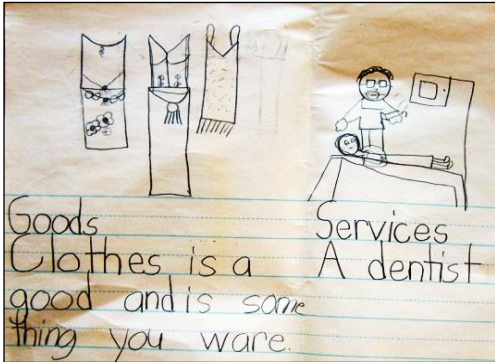 Goods
Clothes is a
good and is some
thing you ware.
Services
A dentist